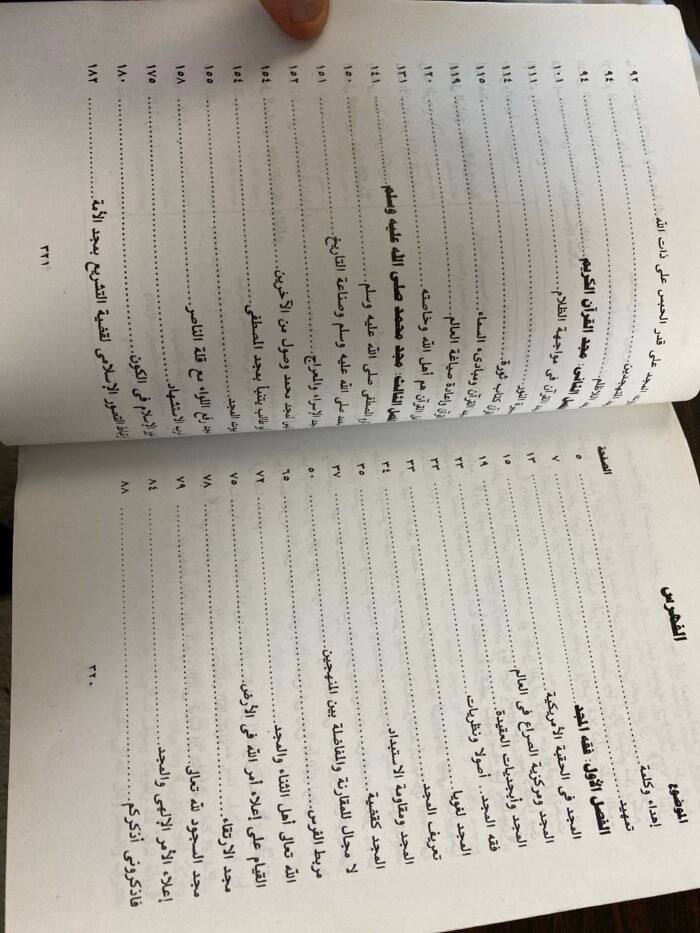 الفهرس
الموضوع الصفحة
إهداء وكلمة ٥
تمهيد ٧
الفصل الأول: فقه المجد ١٣
المجد فى الحقبة الأمريكية ١٥
المجد ومركزية الصراع فى العالم ١٩
المجد وأبجديات العقيدة ٢٣
فقه المجد.. أصولا ونظريات
المجد لغويا
تعريف المجد ٣٤
المجد ومقاومة الاستبداد ٣٥
المجد كقضية ٣٧
لا مجال للمقارنة والمفاضلة بين المنهجين ٥٠
مربط الفرس ٦٥
الله تعالى أهل الثناء والمجد ٧٢
القيام على إعلاء أمر الله فى الأرض ٧٥
مجد الارتقاء ٧٨
مجد السجود لله تعالى ٧٩
إعلاء الأمر الإلهى والمجد ٨٤
فاذكرونى أذكركم ٨٨
٣٢٠
المجد على قدر الحبس على ذات الله ٩٢
المتهجدين ٩٤
٩٤
الثانى: مجد القرآن الكريم ١٠١
القرآن فى مواجهة الظلام ١١١
النور ١١٤
كتاب ثورة ١١٥
القرآن ومبادىء السماء ١١٩
وإعادة صياغة العالم ١٢٠
القرآن هم أهل الله وخاصته ١٣١
الثالث: مجد محمد صلى الله عليه وسلم ١٤١
المصطفى صلى الله عليه وسلم ١٥٠
صلى الله عليه وسلم وصناعة التاريخ ١٥١
الإسراء والمعراج ١٥٢
لمجد محمد وصول من الآخرين ١٥٤
طالب يتنبأ بمجد المصطفى ١٥٤
المجد ١٥٥
رفع اللواء مع قلة الناصر ١٥٨
الاستشهاد ١٧٥
الإسلام فى الكون ١٨٠
التصور الإسلامى لقضية التشريع بمجد الأمة ١٨٢
٣٢١